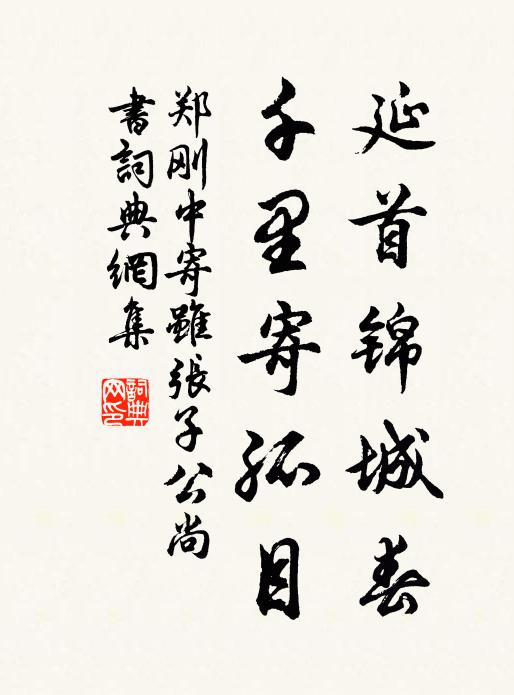 延首锦城春
千里寄孤目
郑刚中寄虽张子公尚
書詞典網集
詞典
网印